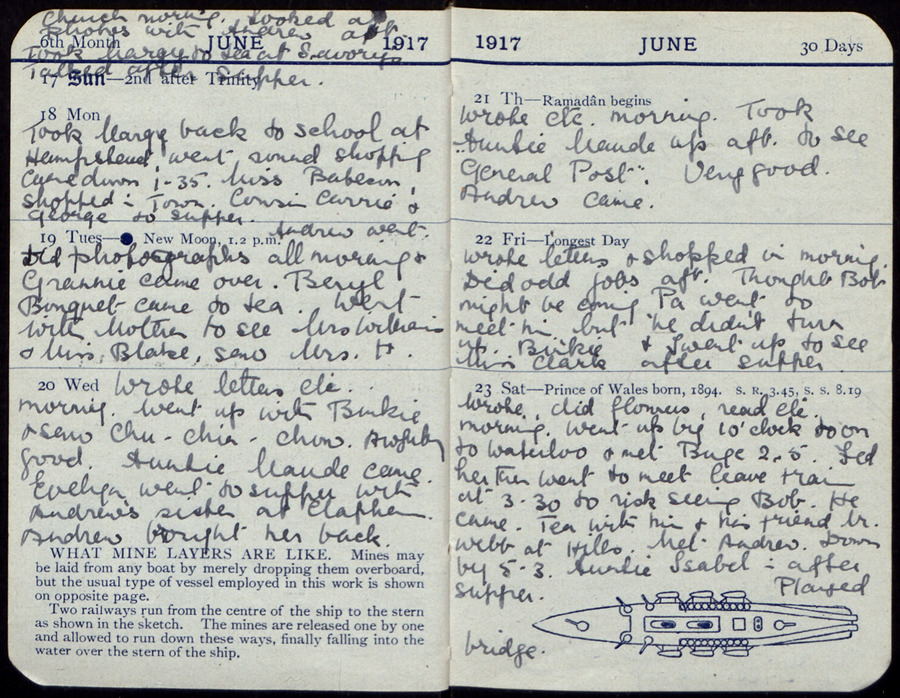 Church morning. Looked at
photos with Andrew aft.
6th Month JUNE 1917
Took Margy to tea at Savorys
Talked after Supper.
17 Sun—2nd after Trinity
18 Mon
Took Margy back to school at
Hempstead, went round shopping
Came down 1-35. Miss
shopped in Town. Cousin Carrie &
George to supper.
Andrew went.
19 Tues—● New Moon, 1.2 p.m.
Did photographs all morning &
Grannie came over. Beryl
Bouquet came to tea. Went
with Mother to see Mrs Williams
& Miss Blake, saw Mrs. H.
20 Wed Wrote letters etc.
morning. Went up with Binkie
& saw Chu-chin-chow. Awfully
good. Auntie Maude came
Evelyn went to supper with
Andrew's sister at Clapham.
Andrew brought her back.
WHAT MINE LAYERS ARE LIKE. Mines may
be laid from any boat by merely dropping them overboard,
but the usual type of vessel employed in this work is shown
on opposite page.
Two railways run from the centre of the ship to the stern
as shown in the sketch. The mines are released one by one
and allowed to run down these ways, finally falling into the
water over the stern of the ship.
1917 JUNE 30 Days
21 Th—Ramadân begins
Wrote etc. morning. Took
Auntie Maude up aft. to see
General Post". Very good.
Andrew came.
22 Fri—Longest Day
Wrote letters & shopped in morning.
Did odd jobs aft. Thought Bob
might be coming Pa went to
meet him but he didn't turn
up. Binkie & I went up to see
Miss Clark after supper
23 Sat—Prince of Wales born, 1894. S. R. 3.45, S. S. 8.19
Wrote, did flowers, read etc.
morning. Went up by 10'clock to on
to Waterloo & met Buge 2.5. Fed
her then went to meet leave train
at 3-30 to risk seeing Bob. He
came. Tea with him & his friend Mr.
Webb at Hills. Met Andrew. Down
by 5-3. Auntie Isabel in after
supper. Played
bridge.